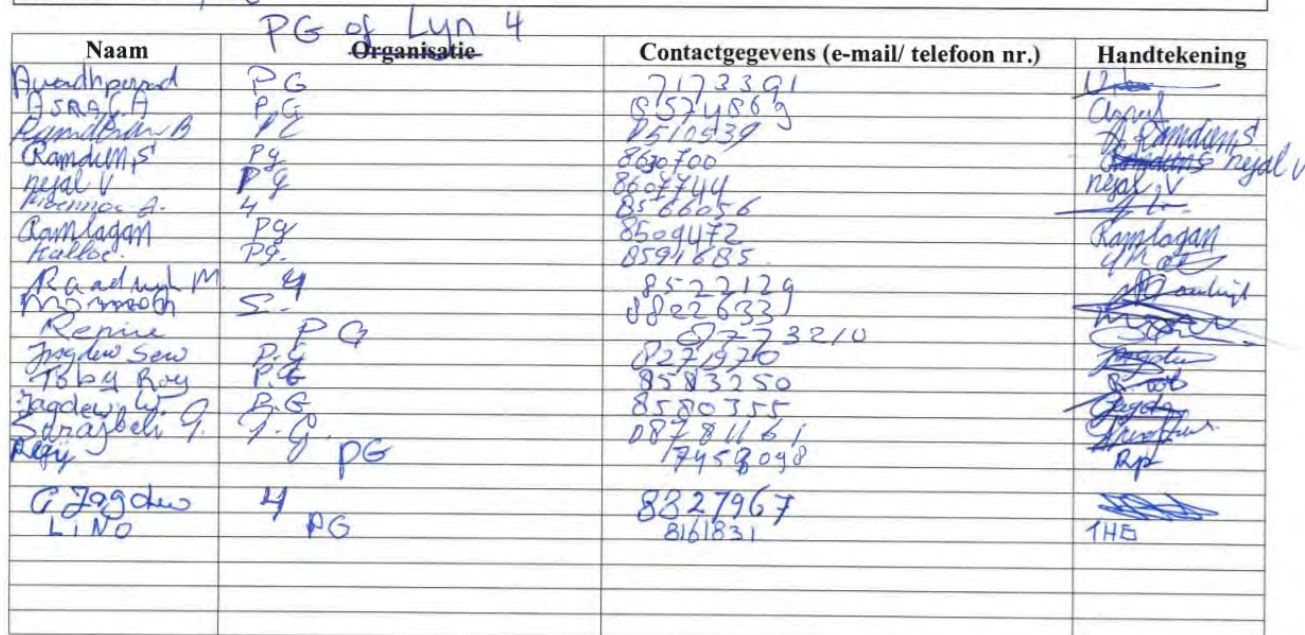 PG of Lyn 4
Naam Organisatie Contactgegevens (e-mail/ telefoon nr.) Handtekening
PG 7173391
ASRAF.A P.G 8574869
Ramdhan B 8510939
Ramdin,S Pg 8630700 Ramdin,S
nejal V Pg 8607744 nejal V
4 8566056
Ramlagan Pg 8509472 Ramlagan
Kalloe. Pg. 8591685.
Raadwijk M 4 8522129
S. 8822633
Repire PG 8773210
Jagdew Sew P.G 8271970
Toby Roy P.G 8583250
Jagdew, W. P.G 8580355 Jagdew
Surajbeli G. P.G. 08781161
PG 7458098 Rp
G Jagdew 4 8827967
LINO PG 8161831 THE